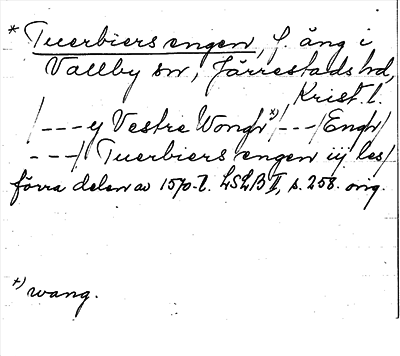 * Tuerbiers engen, f. äng i
Vallby sn, Järrestads hd,
Krist. l.
/---y Vestre Wongh x)/---/Engh/
---/ Tuerbiers engen iij les/
förra delen av 1570-t. LSLB II, s. 258. orig.
x) wang.